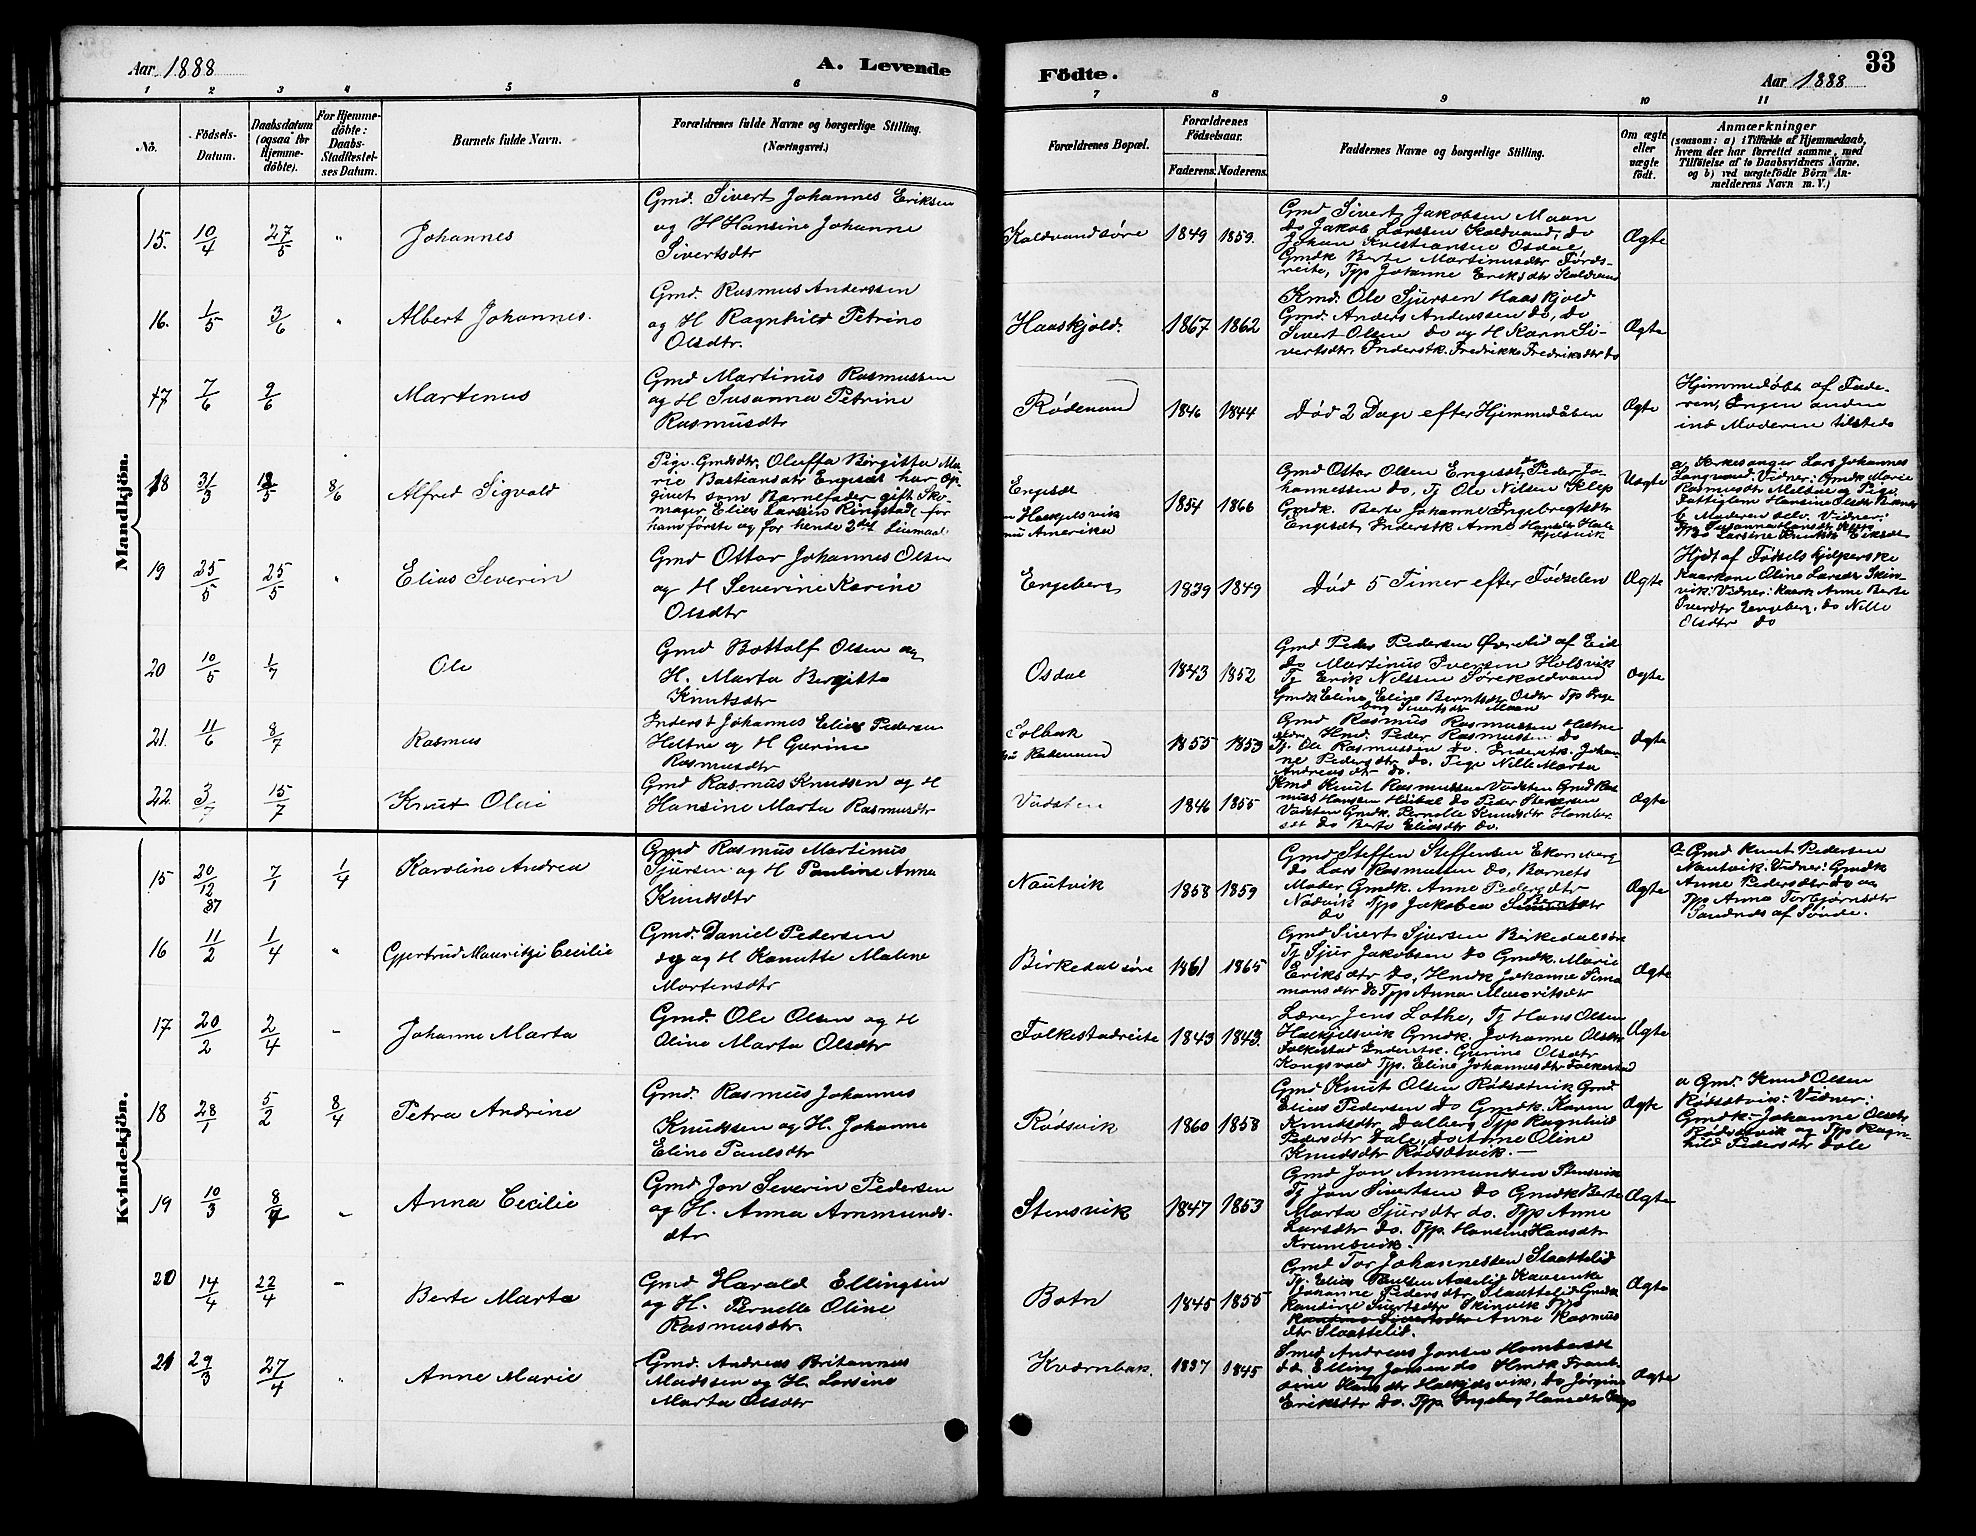 Aar 1888
A. Levende
1 2 3 4 5 6
No.
Födsels-Datum.
Daabsdatum (ogsaa for Hjemme-döbte).
For Hjemme-döbte: Daabs-Stadfestel-ses Datum.
Barnets fulde Navn.
Forældrenes fulde Navne og borgerlige Stilling.
(Næringsvei.)
Mandkjön.
15. 10/4 27/5 " Johannes
Gmd. Sivert Johannes Eriksen
og H Hansine Johanne
Sivertsdtr
16. 1/5 3/6 " Albert Johannes.
Gmd. Rasmus Anderssen
og H Ragnhild Petrine
Olsdtr.
17 7/6 9/6 Martinus
Gmd Martinus Rasmussen
og H Susanna Petrine
Rasmusdtr
18 31/3 13/5 8/6 Alfred Sigvald
Pige Gmdsdtr. Oluffa Birgitta Ma-
rie Bastiansdtr Engeset har op-
givet som Barnefader gift Sko-
mager Elias Larssen Ringstad for
ham förste og for hende 2det Leiermaal
19 25/5 25/5 " Elias Severin
Gmd Ottar Johannes Olsen
og H Severine Karine
Olsdtr
20 10/5 1/7 Ole
Gmd Bottolf Olsen og
H. Marta Bergitta
Knutsdtr
21. 11/6 8/7 Rasmus
Inderst Johannes Elias Pedersen
Heltne og H Gurine
Rasmusdtr
22 3/7 15/7 Knut Olai
Gmd Rasmus Knudsen og H
Hansine Marta Rasmusdtr
Kvindekjön.
15 20/12 87 7/1 1/4 Karoline Andrea
Gmd Rasmus Martinus
Sjursen og H Pauline Anna
Knudsdtr
16 11/2 1/4 " Gjertrud Mauritzi Cecilie
Gmd. Daniel Pedersen
og H Kanutte Malene
Martensdtr
17 20/2 2/4 - Johanne Marta
Gmd. Ole Olsen og H
Oline Marta Olsdtr
18 28/1 5/2 8/4 Petra Andrine
Gmd. Rasmus Johannes
Knutssen og H. Johanne
Eline Paulsdtr
19 10/3 8/4 " Anna Cecilie
Gmd Jon Severin Pedersen
og H. Anna Ammunds-
dtr
20 14/4 22/4 - Berte Marta
Gmd Harald Ellingsen
og H. Pernelle Oline
Rasmusdtr.
21 29/3 27/4 " Anne Marie
Gmd. Andreas Britannus
Madssen og H. Larsine
Marta Olsdtr
Födte.
33
Aar 1888
7 8 9 10 11
Forældrenes Bopæl.
Forældrenes Födselsaar.
Faderens. Moderens.
Faddernes Navne og borgerlige Stilling.
Om ægte eller uægte født.
Anmærkninger
(saasom: a) i Tilfælde af Hjemmedaab,
hvem der har forrettet samme, med
Tilföielse af to Daabsvidners Navne,
og b) ved uægtefödte Börn An-
melderens Navn m. V.)
Koldvandsöre 1849 1859.
Gmd Sivert Jakobsen Maan
do Jakob Larssen Koldvand, do
Johan Kristiansen Osdal
Gmdk Berte Martinusdtr Förds-
reite, Tpp Johanne Eriksdtr Koldvand
Ægte
Haaskjold. 1867 1862
Kmd. Ole Sjursen Haaskjold
Gmd. Anders Anderssen do, do
Sivert Olsen do og H Karen Si-
vertsdtr, Inderstk. Fredrikke Fredriksdtr do
Ægte
Rödesund 1846 1844
Död 2 Dage efter Hjemmedåben
Ægte
Hjemmedöbt af Fade-
ren, Ingen anden
end Moderen tilstede
Engeset
Halkjelsvik
nu Amerika
1854 1866
Gmd Ottar Olsen Engeset, do Peder Jo-
hannessen do, Tj Ole Nilsen Klep
Gmdk. Berte Johanne Ingebregtsdtr
Engeset, Inderstk Anne Hansdtr Hale
kjelsvik
Uægte
a. Kirkesanger Lars Johannes
Langvad. Vidner: Gmdk Marie
Rasmusdtr Melbö og Pige
Hansine Olsdtr
b. Moderen selv. Vidner:
Engeberg 1839 1849
Död 5 Timer efter Födselen
Ægte
Hjdt af Födselshjelperske
Kaarkone Oline Larsdtr Skin-
vik: Vidner: Kaark Anne Berte
Iversdtr Engeberg, do Nille
Olsdtr do
Osdal 1843 1852
Gmd Peder Pedersen Övrelid af Eid
do Martinus Iversen Holsvik
Tj Erik Nilssen Sörekoldvand
Gmdk Elina Berntsdtr Osdtr Tpp Inge
borg Sivertsdtr Maan
Ægte
Solbak
nu Rödesund
1855 1853
Gmd Rasmus Rasmussen Hetne
Hmd. Peder Rasmussen do
Tj. Ole Rasmussen do. Inderstk. Johan-
ne Pedersdtr do. Pige Nille Marta
Andreasdtr do.
Ægte
Vadsten 1846 1855
Kmd Knut Rasmussen Vadsten Gmd Ras
mus Hanssen Höidal do Peder Steffensen
Vadsten Gmdk. Pernelle Knudsdtr Homber
set do Berte Eliasdtr do.
Ægte
Nautvik 1858 1859
Gmd Steffen Steffensen Ekornberg
do Lars Rasmussen do, Barnets
Moder Gmdk. Anne Pedersdtr
Nödvik Tpp Jakobea
do
Ægte
a. Gmd Knut Pedersen
Nautvik: Vidner: Gmdk
Anne Pedersdtr do og
Tpp Anna Torbjörnsdtr
Sandnes af Söndre.
Birkedalsöre 1861 1865
Gmd Sivert Sjursen Birkedalsöre
Tj Sjur Jakobsen do Gmdk. Marie
Eriksdtr do, Hmdk Johanne Sima
monsdtr do Tpp Anna Mauritsdtr
Ægte
Folkestadreite 1843 1843.
Lærer Jens Lothe, Tj Hans Olsen
Halkjelsvik Gmdk. Johanne Olsdtr
Folkestad Inderstk. Gurine Olsdtr
Kongsvold Tpp. Eline Johannesdtr Folkestad
Ægte
Rödsvik 1860 1858
Gmd Knut Olsen Rödsætvik Gmd
Elias Pedersen do Gmdk. Karen
Knudsdtr Dalberg Tpp Ragnhild
Pedersdtr Dale, do Anne Oline
Knudsdtr Rödsætvik. -
Ægte
a Gmd. Knud Olsen
Rödsætvik: Vidner:
Gmdk. Johanne Olsdtr
Rödsætvik og Tpp Ragn-
hild Pedersdtr Dale
Stensvik 1847 1853
Gmd Jon Ammundsen Stensvik
Tj Jon Sivertsen do Gmdk Berte
Marta Sjursdtr do. Tpp Anne
Larsdtr do. Tpp. Hansine Hansdtr
Krumsvik.
Ægte
Botn 1845 1855
Gmd Tor Johannessen Slaattelid
Tj. Elias Paulsen Aaselid Kaarenke
Johanne Pedersdtr Slaattelid Gmdk
Kandine Sivertsdtr Skinvik Tpp
Anne Rasmus
dtr Slaattelid.
Ægte
Kværnbak. 1837 1845
Smed Andreas Jonsen Homberset
do. Elling Jonsen do Hmdk Frant-
sine Hansdtr Halkjelsvik, do Jörgine
Eriksdtr do. Tpp. Ingeborg Hansdtr
Ægte